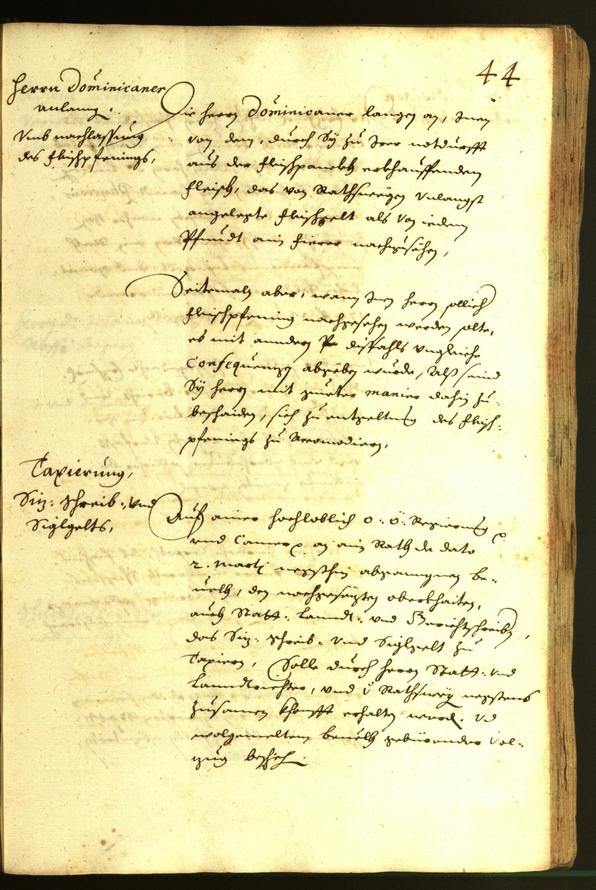 44
Herrn Dominicaner
anlang.
Umb nachlassung
des fleischpfenings,
Die herrn Dominicaner langen an, Inen
von dem, durch Sÿ zu Irer notdurfft
aus der fleischpanckh erkhauffenden
fleisch, das von Rathswegen Vnlangst
angelegte fleischgelt als von iedem
Pfundt ain fierer nachzusehen,
Seitemaln aber, wann Inen herrn solich
fleischpfening nachgesehen werden solte,
es mit andern disfahls vngleiche
Consequenz abgeben wurde, Als sind
Sÿ herrn mit gueter manier dahin zu
beschaiden, sich zu entgeltung des fleisch-
pfenings zu Accomodiern,
Taxierung,
Siz: schreib: Vnd
Siglgelts,
Auf ainer hochloblich O: Ö: Regierung
vnd Camer an ain Rath de dato
2. Martÿ negsthin abgangnen be-
velch, den nachgesezten oberkhaiten,
auch Statt: Lanndt: vnd Gerichtschreibern,
das Siz: schreib: Vnd Siglgelt zu
Taxiern, Solle durch herrn Statt: Vnd
Lanndtrichter, vnd Rathsweg negstens
zusamen khonfft erhalten werden. Vnd
wolgemeltem bevelch gebürender vol-
zug beschehen.